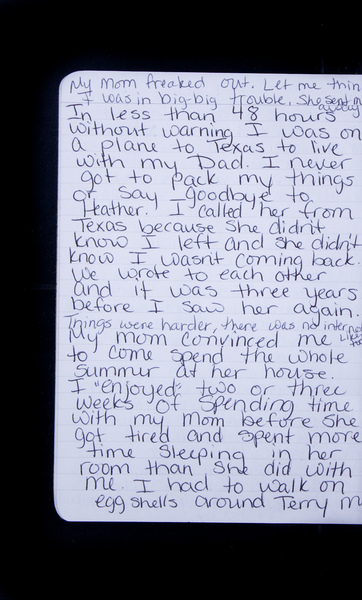 My Mom freaked out. Let me thin
I was in big-big trouble. She sent m
away
In less than 48 hours
without warning I was on
a plane to Texas to live
with my Dad. I never
got to pack my things
or say goodbye to
Heather. I called her from
Texas because she didn't
know I left and she didn't
know I wasn't coming back.
We wrote to each other
and it was three years
before I saw her again.
Things were harder, there was no internet
like
My mom convinced me
to come spend the whole
Summur at her house.
I "enjoyed" two or three
weeks of spending time
with my mom before she
got tired and spent more
time sleeping in her
room than she did with
me. I had to walk on
egg shells around Terry m